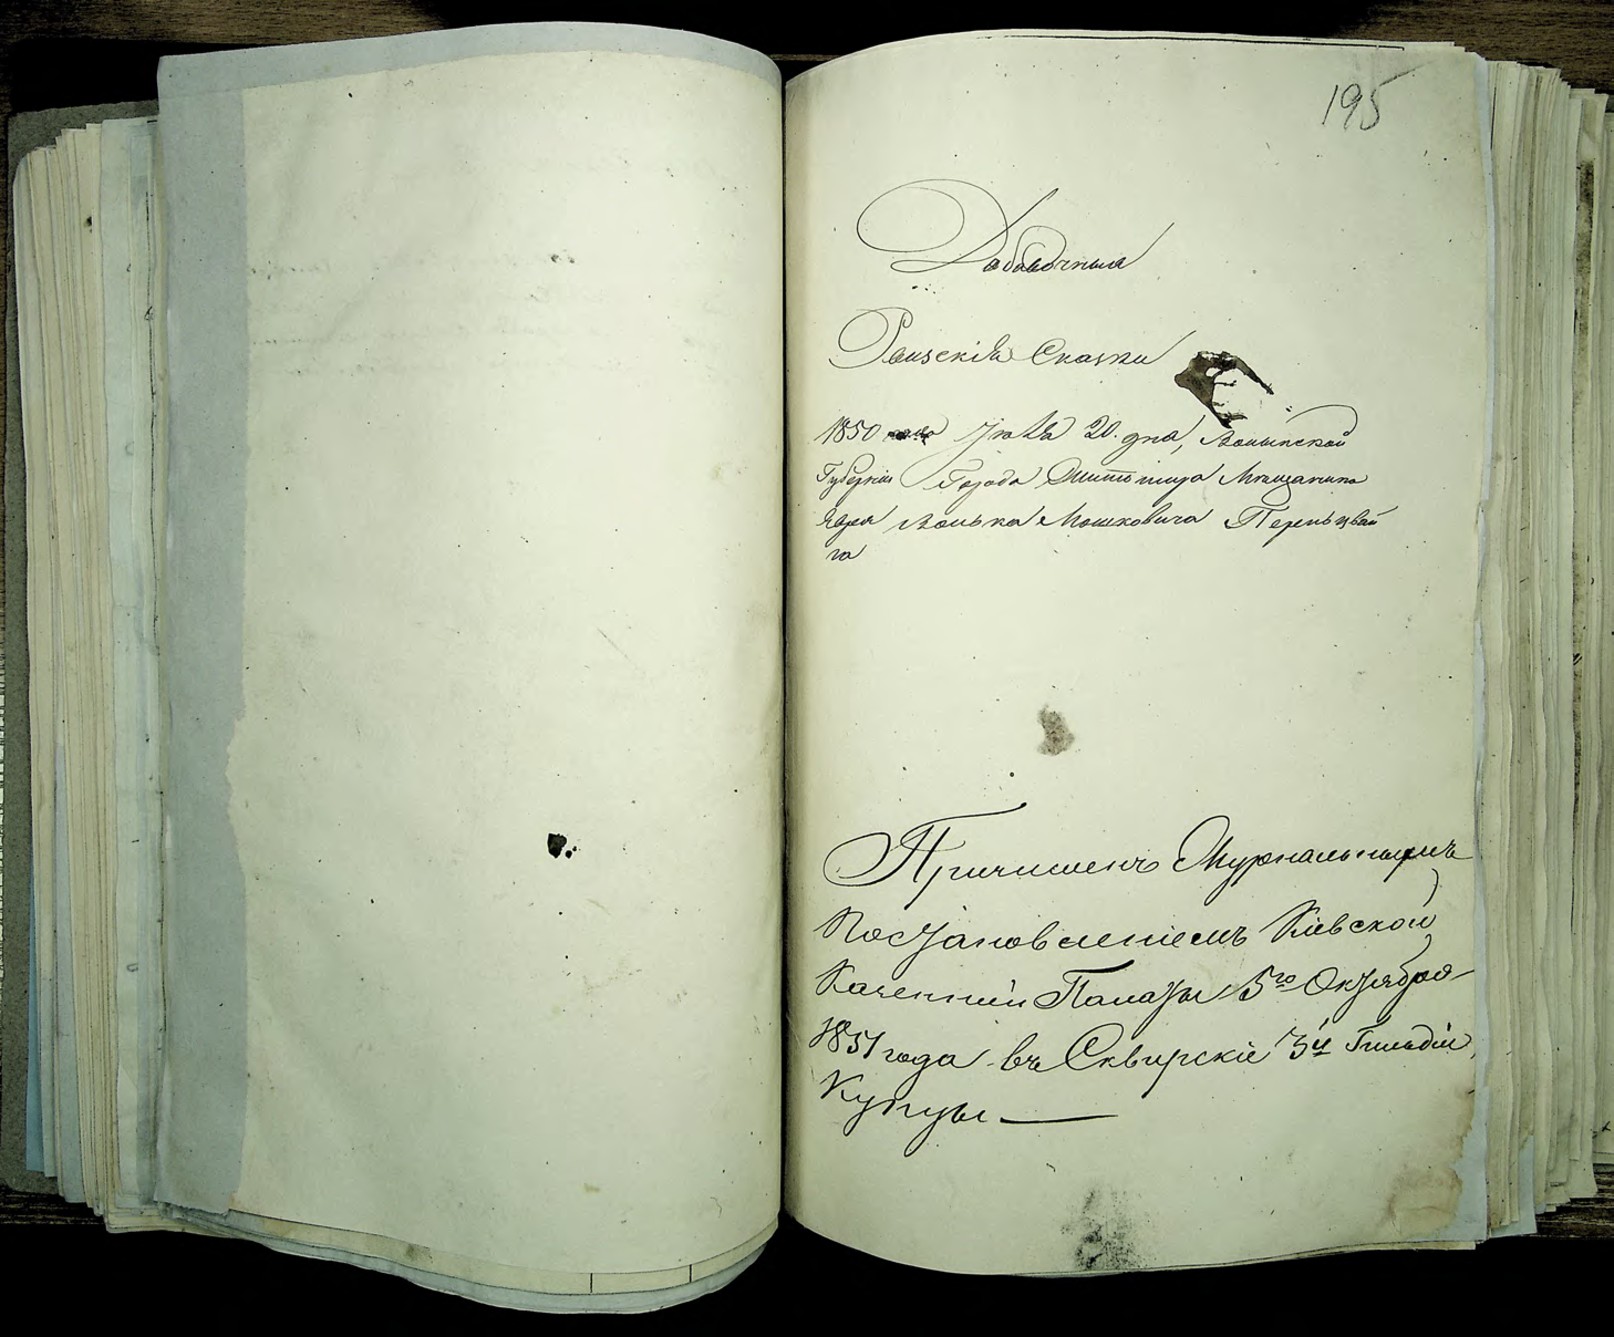 195
Добавочныя
Ревизскія Сказки
1850 Іюля 20. дня, Волынской
Губерніи Города Житомира Мещанина
Волька Мошковича Перельцвай
га
Причисленъ Журнальнымъ
Постановленіемъ Кіевской
Казенной Палаты 5го Октября
1851 года въ Сквирскіе 3й Гильдіи
Купцы